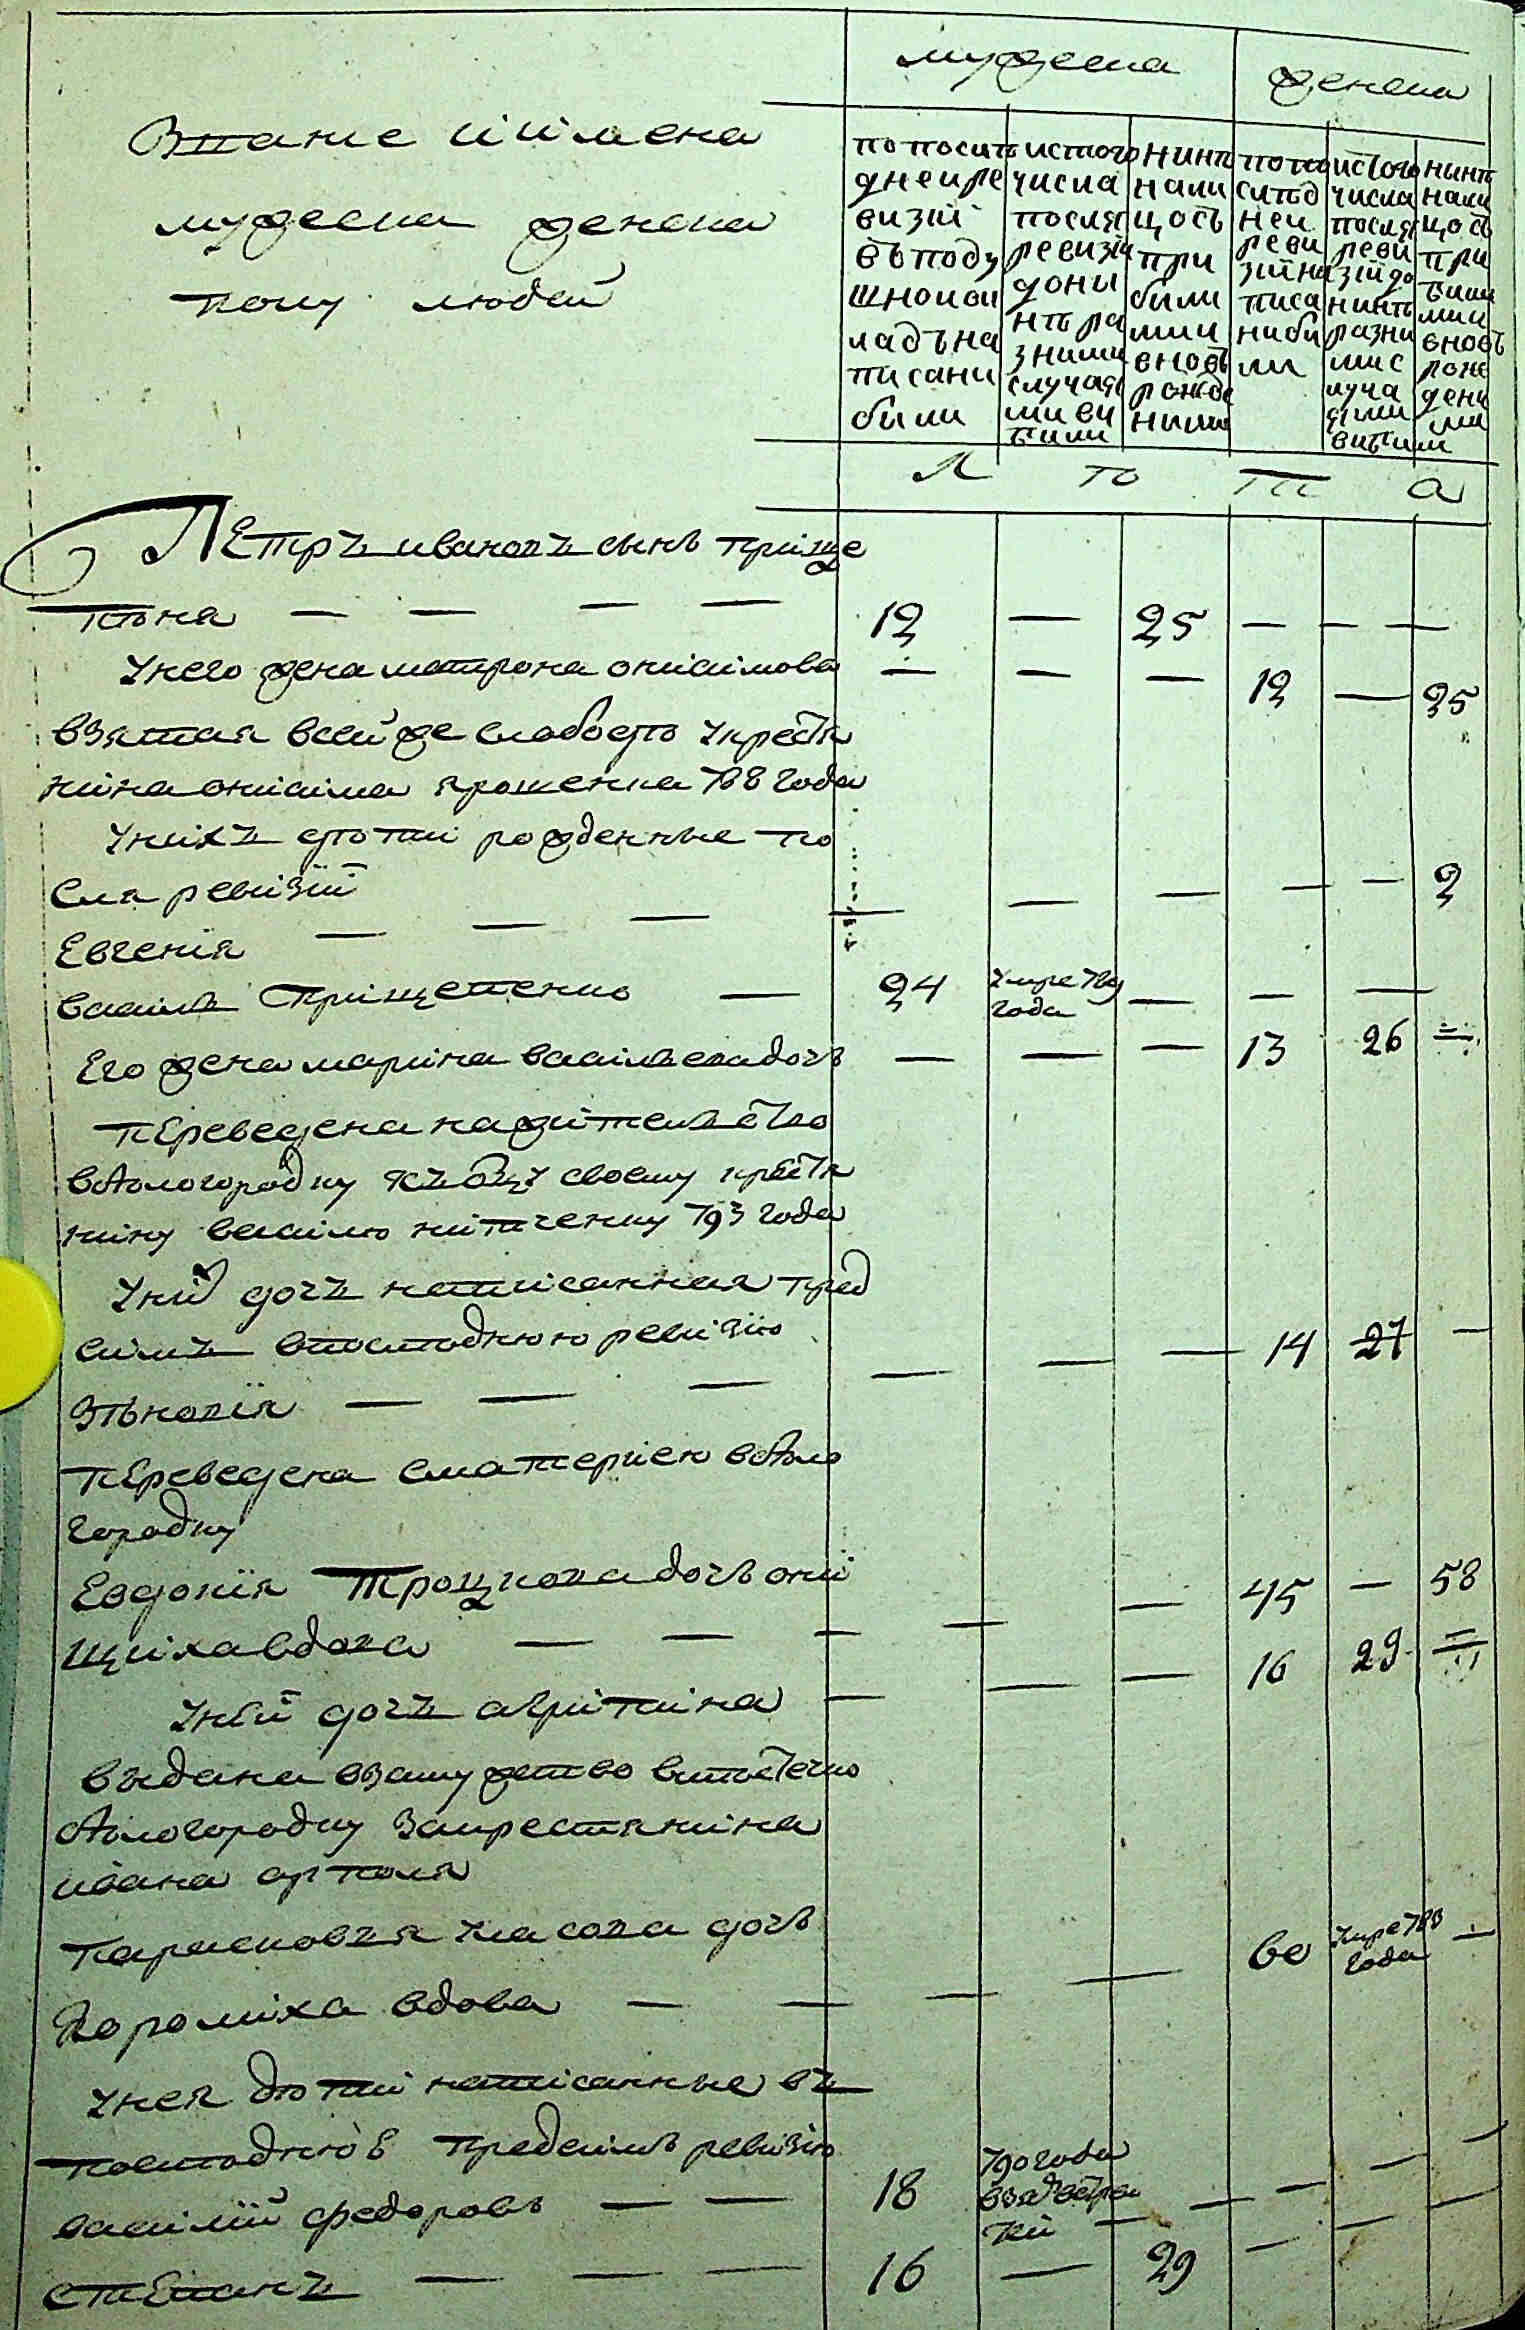 мужеска
женска
Звание и имена
мужеска женска
полу людей
по послѣ
дней ре
визіи
въ поду
шной ок
ладъ на
писани
были
ис того
числа
после
ревизіи
до ны
нѣ ра
зними
случая
ми вы
были
нинѣ
на ли
цось
при
были
ми и
вновъ
рожде
ними
по по
слѣд
ней
реви
зіи на
писа
ни бы
ли
ис того
числа
после
реви
зіи до
нинѣ
разни
ми с
луча
ями
выбили
нинѣ
на ли
цось
при
были
ми и
вновъ
рож
дени
ми
Л ѣ т а
Петръ ивановъ сынъ прище
пѣна — — — — 12 — 25 — — —
у него жена матрона онисимова — — — 12 — 25
взятая всей же слободѣ у крестя
нина онисима ярошенка 788 года
у нихъ дѣти рожденные по
сля ревизіи
Евгенія — — — — — — — — 2
василь Прищепенко — 24 умре 789 года — — —
Его жена марина васильева дочъ — — — 13 26 =
переведена на жителство
въ Мологородку къ отцу своему крестя
нину василю нитченку 793 года
у ней дочъ написанная пред
симъ в последнюю ревизію
Зѣновія — — — — — — 14 27 —
переведена с матерю в Моло
городку
Евдокія Троцкова дочъ они
щиха вдова — — — — — 45 — 58
у ней дочъ агрипина — — — 16 29 =
выдана в замужетво
Мологородку за крестянина
ивана
парасковія власова дочъ
Хоромиха вдова — — — — 60 умре 788 года —
у нея дѣти написанные въ
последнюю предсимъ ревизію
василій федоровъ — — 18 790 года взят в рекруты — — — —
степанъ — — — 16 — 29 — — —